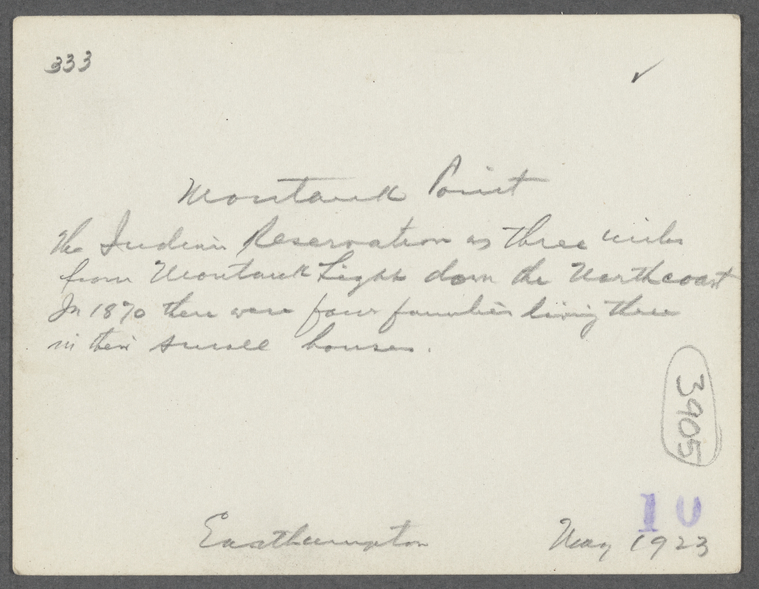 333
✓
Montauk Point
The Indian Reservation is three miles
from Montauk Light down the North coast
In 1870 there were four families living there
in their small houses.
3905
10
Easthampton May 1923